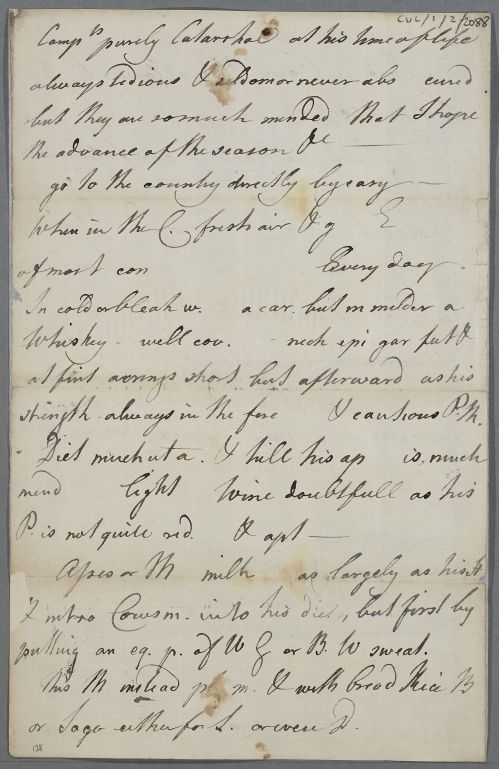 CUL/1/2/2088
Comp.ts purely Catarrhal at his time of life
always tedious & seldom or never abs cured
but they are so much mended that I hope
the advance of the season &c
go to the country directly by easy
When in the C. fresh air & g E
of mart con Every day.
In cold or bleak w. a car. but in milder a
Whiskey well cov. neck epi gar feet &
at first airings short but afterward as his
strength always in the fore & cautious P.M.
Diet much ut a. & till his ap is much
mend light Wine doubtfull as his
P. is not quite red. & apt
Asses or M milk as largely as his St
& intro Cows m. into his diet, but first by
putting an eq. p. of W G or B. W sweat.
this M instead pl. m. & with bread Rice B
or Sago either for S. or even D.
128